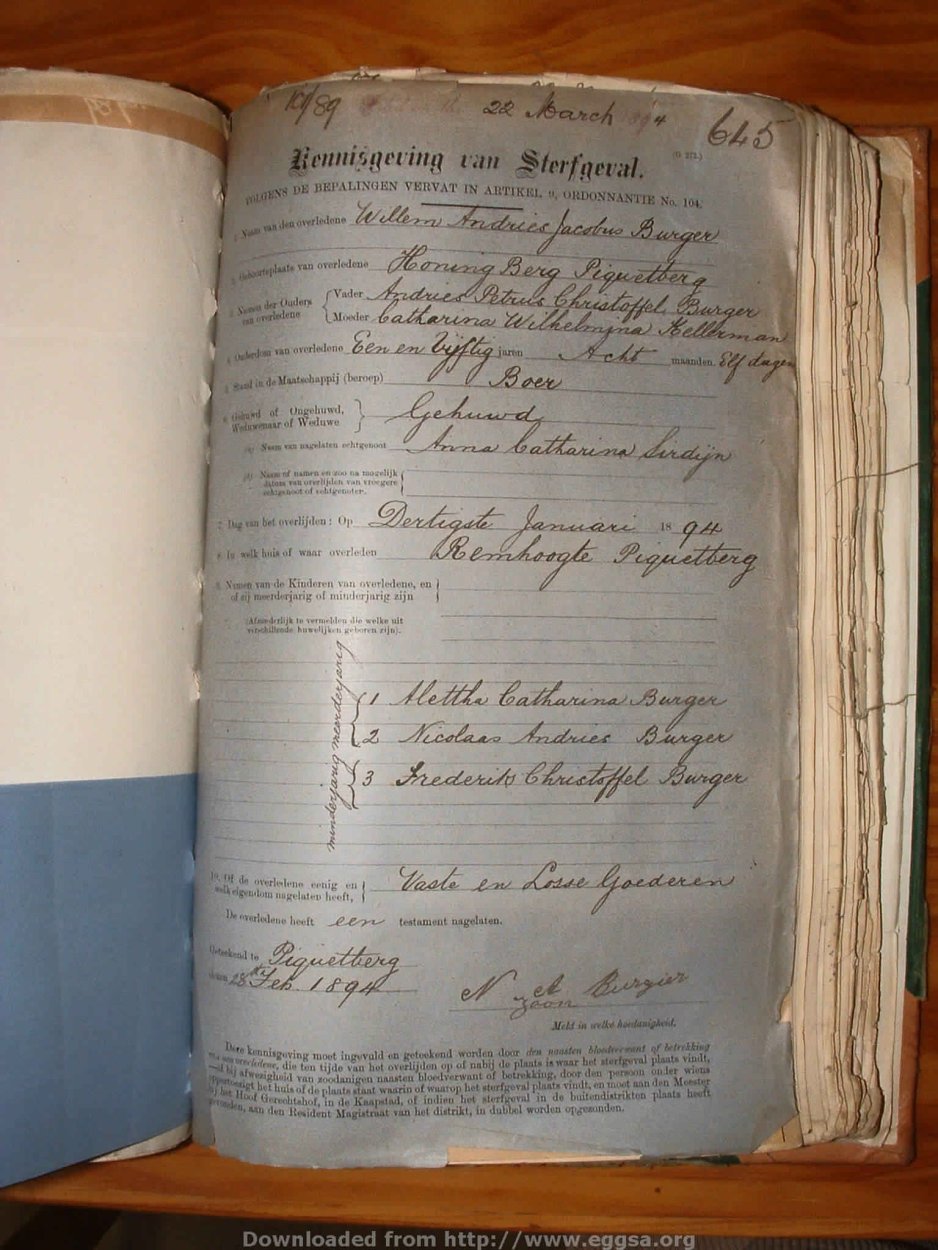 22 March 4
645
Kennisgeving van Sterfgeval.
VOLGENS DE BEPALINGEN VERVAT IN ARTIKEL 9, ORDONNANTIE No. 104.
1. Naam van den overledene Willem Andries Jacobus Burger
2. Geboorteplaats van overledene Honing Berg Piquetberg
3. Namen der Ouders van overledene Vader Andries Petrus Christoffel Burger
Moeder Catharina Wilhelmina Kellerman
4. Ouderdom van overledene Een en Vijftig jaren Acht maanden Elf dagen
5. Stand in de Maatschappij (beroep) Boer
6. Gehuwd of Ongehuwd, Weduwenaar of Weduwe Gehuwd
(a) Naam van nagelaten echtgenoot Anna Catharina Sirdijn
(b) Naam of namen en zoo na mogelijk
datum van overlijden van vroegere
echtgenoot of echtgenooten.
7. Dag van het overlijden: Op Dertigste Januari 1894
8. In welk huis of waar overleden Remhoogte Piquetberg
9. Namen van de Kinderen van overledene, en
of zij meerderjarig of minderjarig zijn
(Afzonderlijk te vermelden die welke uit
verschillende huwelijken geboren zijn).
minderjarig meerderjarig
1 Alettha Catharina Burger
2 Nicolaas Andries Burger
3 Frederik Christoffel Burger
10. Of de overledene eenig en
welk eigendom nagelaten heeft, Vaste en Losse Goederen
De overledene heeft een testament nagelaten.
Geteekend te Piquetberg
28st Feb. 1894
N A Burger
zoon
Meld in welke hoedanigheid.
Deze kennisgeving moet ingevuld en geteekend worden door den naasten bloedverwant of betrekking
van den overledene, die ten tijde van het overlijden op of nabij de plaats is waar het sterfgeval plaats vindt,
bij afwezigheid van zoodanigen naasten bloedverwant of betrekking, door den persoon onder wiens
oppertoezigt het huis of de plaats staat waarin of waarop het sterfgeval plaats vindt, en moet aan den Meester
bij het Hoof Gerechtshof, in de Kaapstad, of indien het sterfgeval in de buitendistrikten plaats heeft
gevonden, aan den Resident Magistraat van het distrikt, in dubbel worden opgezonden.
Downloaded from http://www.eggsa.org